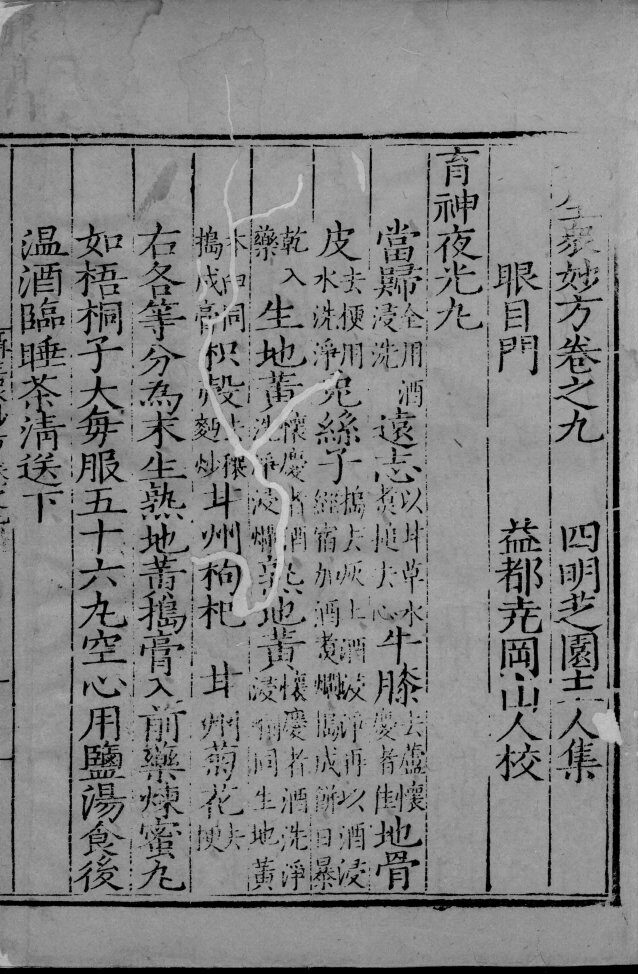 生衆妙方卷之九　四明芝園主人集
眼目門　益都尭岡山人校
育神夜光丸
當歸全用酒浸洗遠志以甘草水煮搥去心牛膝去蘆懷慶者佳地骨
皮去梗用水洗淨兔絲子搗去灰土酒淨再以酒浸經宿加酒煮爛搗成餅日暴
乾入藥生地黃懷慶者酒洗淨浸爛熟地黃懷慶者酒洗淨浸同生地黃
搗成膏枳殼去穰麪炒甘州枸杞甘州菊花去梗
右各等分為末生熟地黃搗膏入前藥煉蜜丸
如梧桐子大每服五十六丸空心用鹽湯食後
温酒臨睡茶清送下